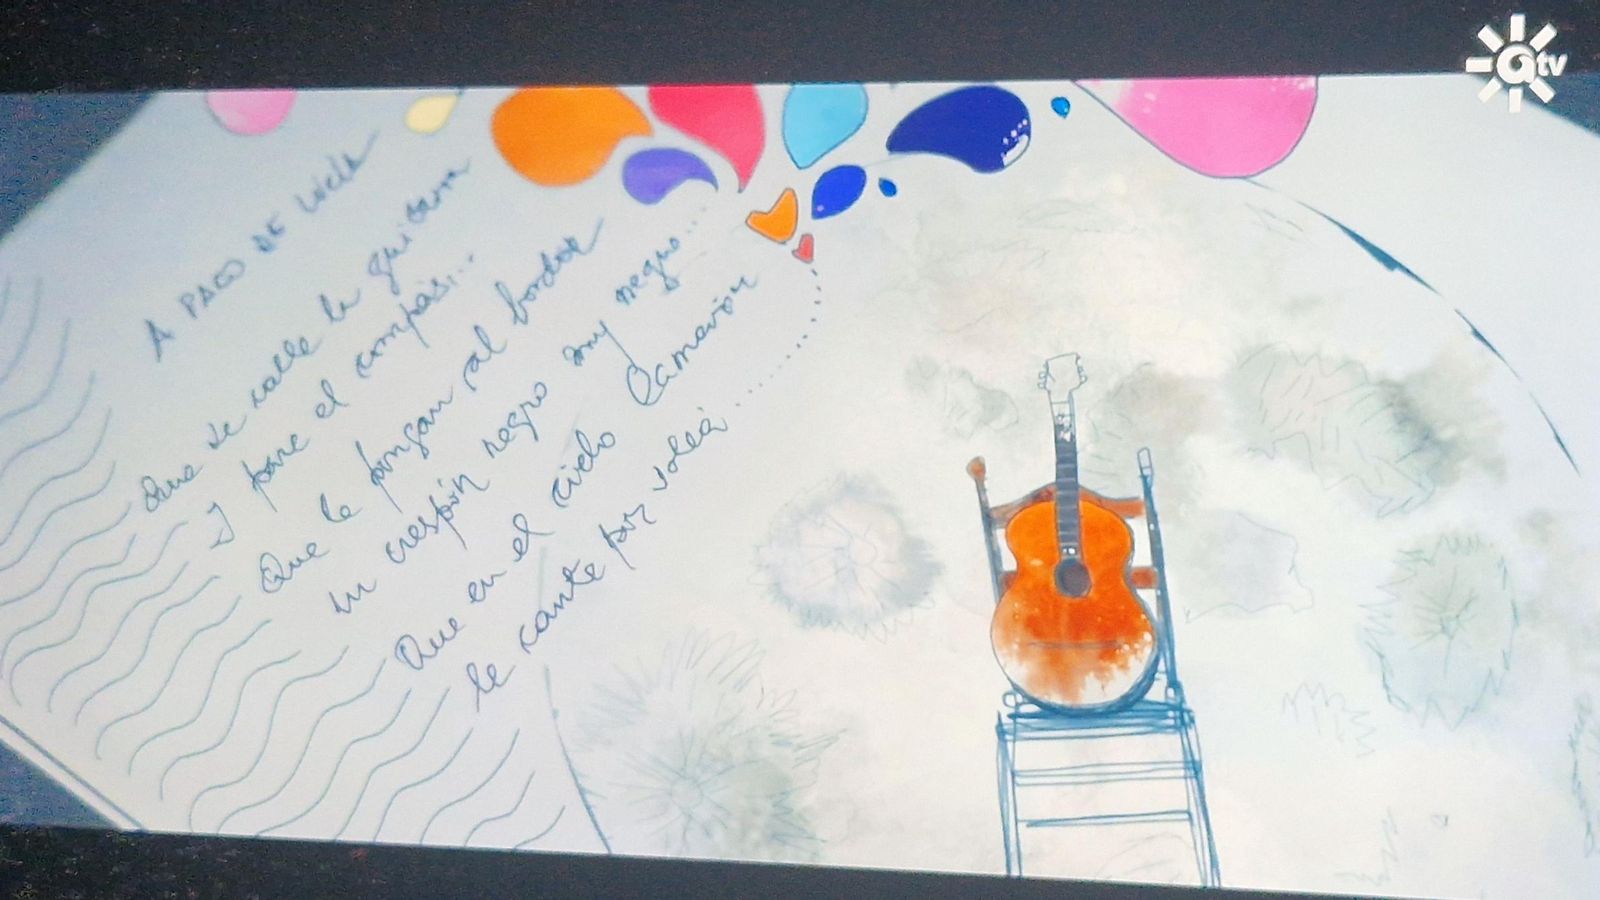 A PACO DE LUCÍA
Que se calle la guitarra
y pare el compás...
Que le pongan al bordón
un crespón negro muy negro...
Que en el cielo Camarón
le cante por soleá
atv